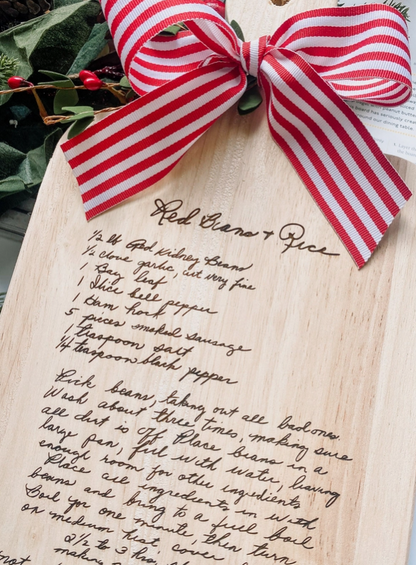 Red Beans + Rice
1/2 lb Red Kidney Beans
1/2 clove garlic, cut very fine
1 Bay leaf
1 slice bell pepper
1 Ham hock
5 pieces smoked sausage
1 teaspoon salt
1/4 teaspoon black pepper
Pick beans, taking out all bad ones.
Wash about three times, making sure
all dirt is off. Place beans in a
large pan, fill with water, leaving
enough room for other ingredients
Place all ingredients in with
beans and bring to a full boil
Boil for one minute, then turn
on medium heat, cover
2 1/2 to 3
not
making